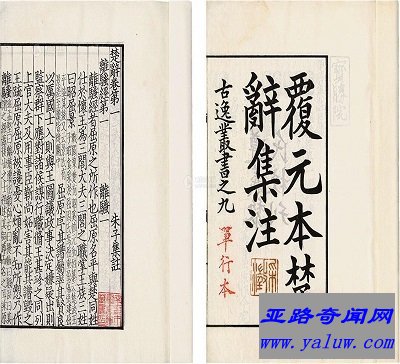 覆元本楚
辭集注
古逸叢書之九 單行本
楚辭卷第一 朱子集註
離騷經第一 離騷一
離騷經者屈原之所作也屈原名平與楚同姓
仕於懷王為三閭大夫三閭之職掌王族三姓
曰昭屈景 屈原序其譜屬率其賢良
以厲國士入則與王圖議政事決定嫌疑出則
監察群下應對諸侯謀行職脩王甚珍之同列
上官大夫及用事臣靳尚妬害其能共譖毀之
王疏屈原屈原被讒憂心煩亂不知所愬乃作
離騷
亚路奇闻网
www.yaluw.com